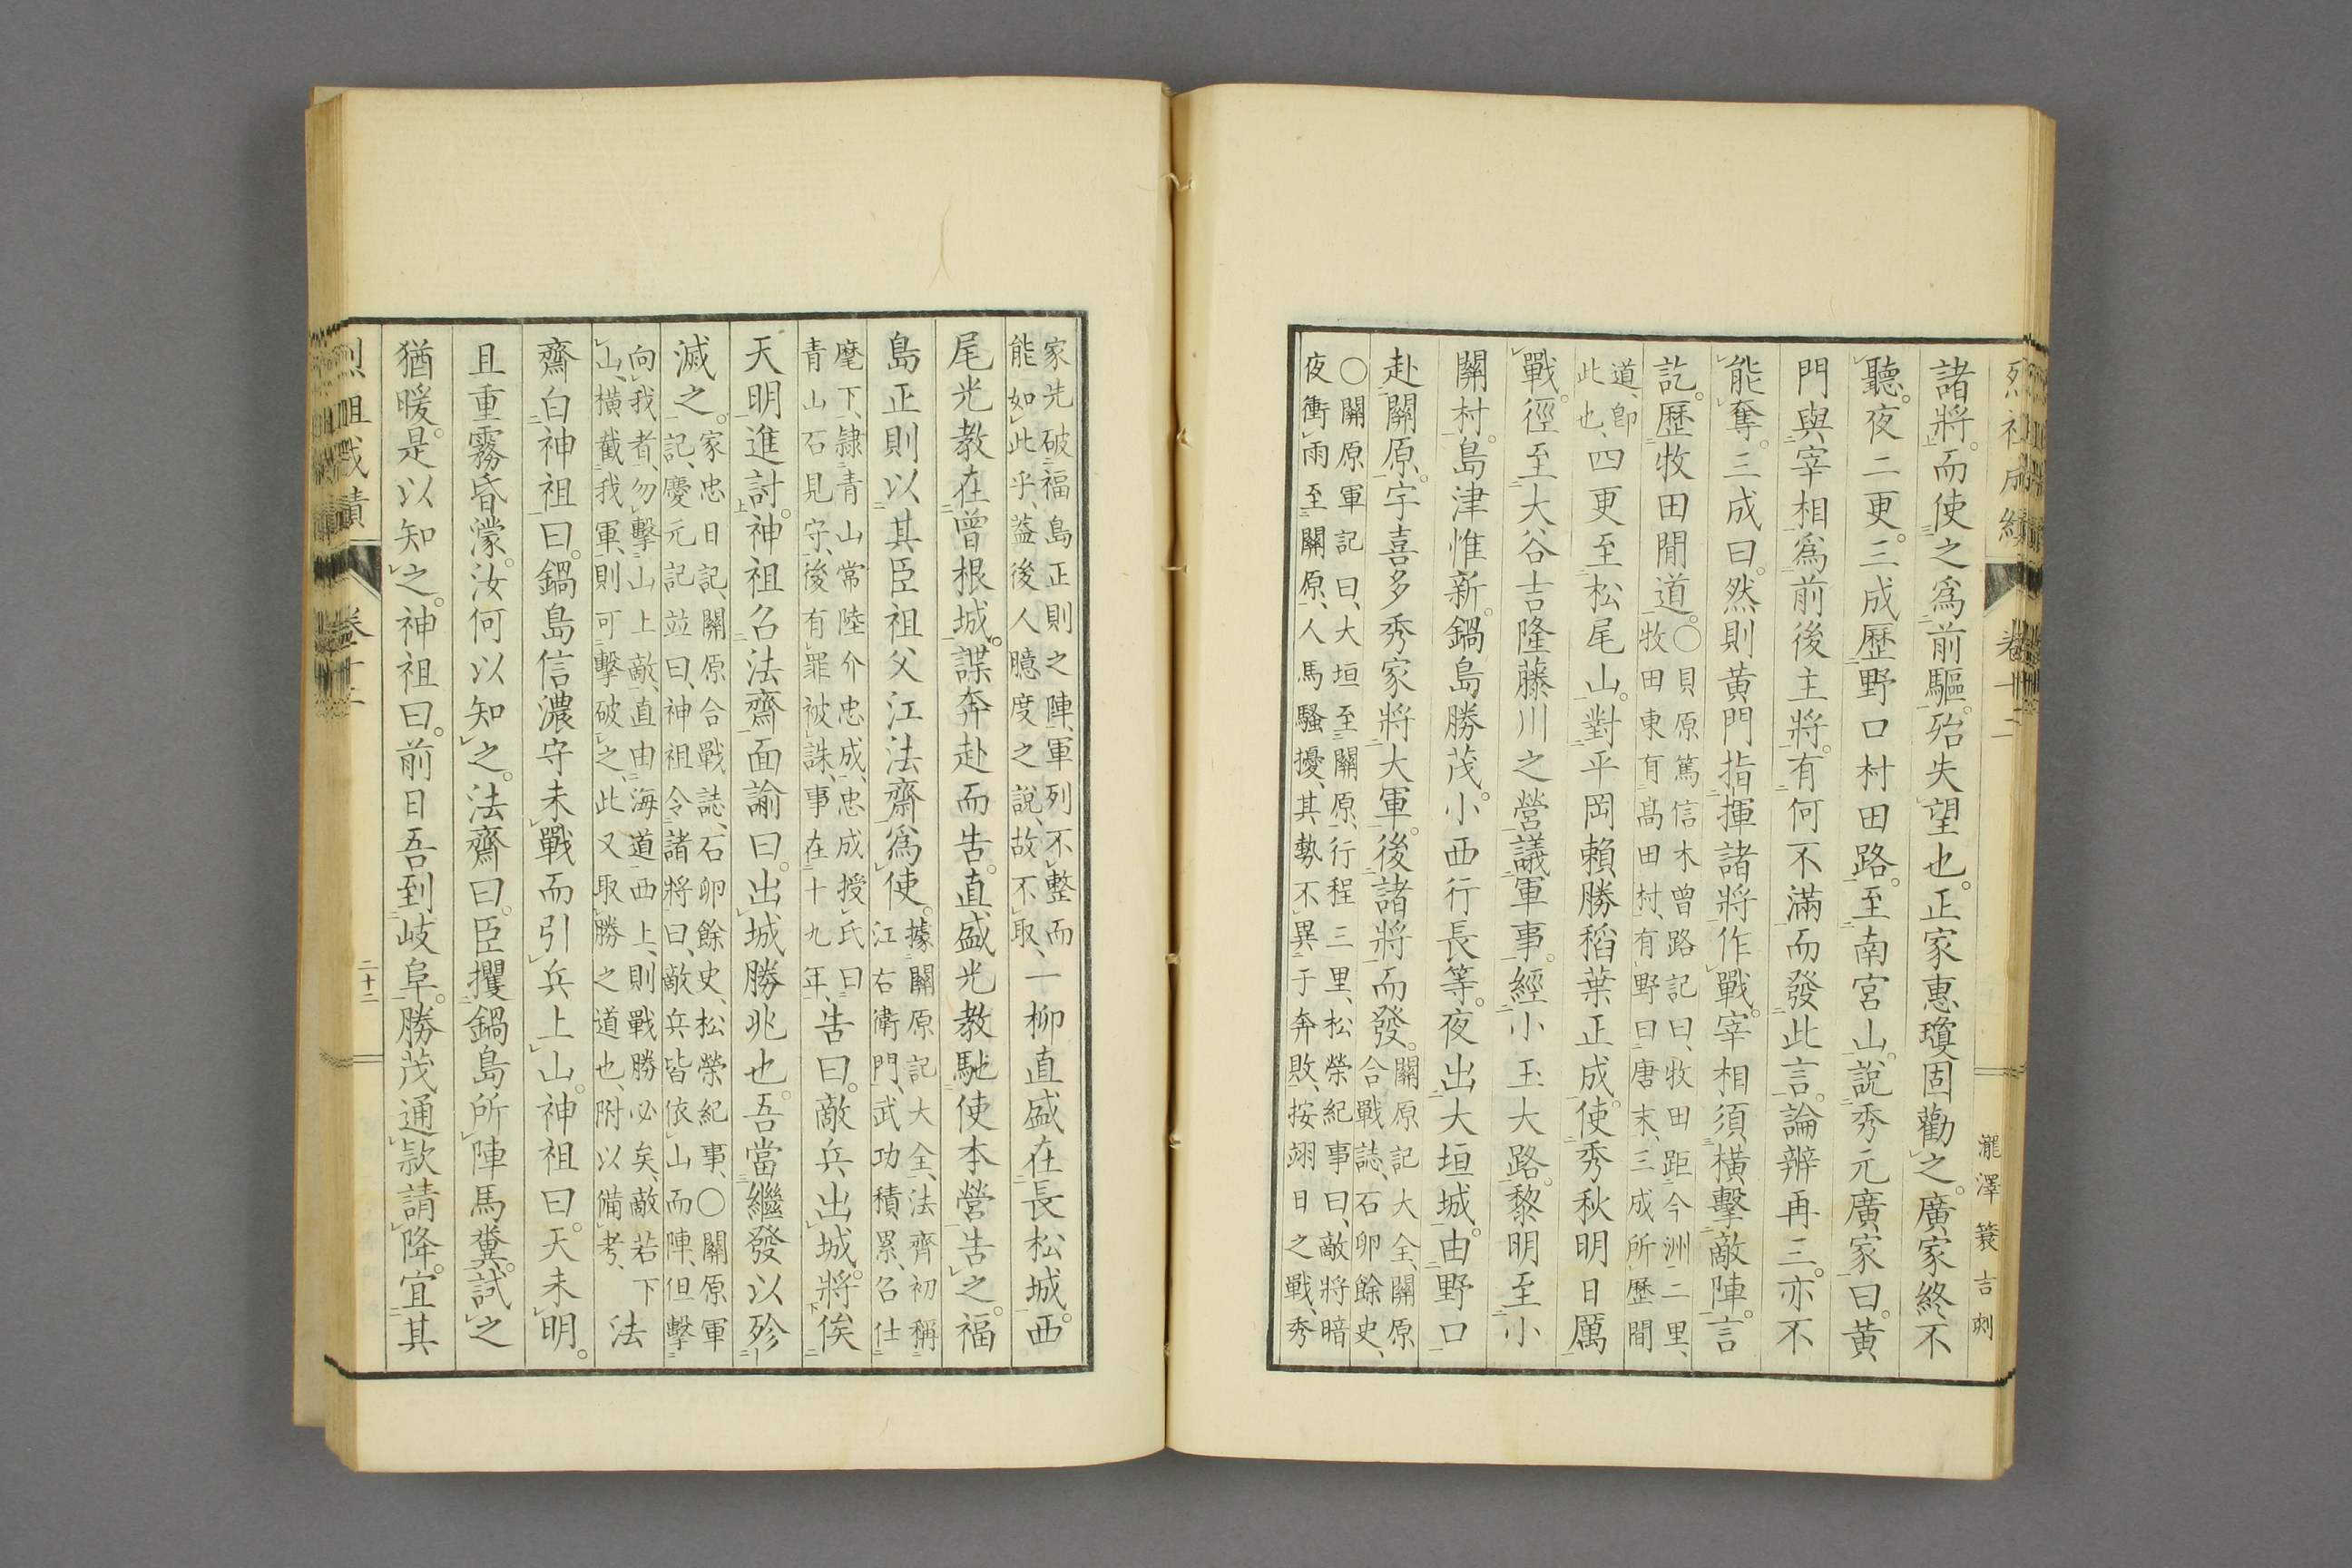 諸將。而使之爲前驅。殆失望也。正家惠瓊固勸之。廣家終不
聽。夜二更。三成歷野口村田路。至南宮山。說秀元廣家曰。黃
門與宰相爲前後主將。有何不滿而發此言。論辨再三。亦不
能奪。三成曰。然則黃門指揮諸將作戰。宰相須橫擊敵陣。言
訖。歷牧田間道。○貝原篤信木曾路記曰、牧田距今洲二里、
牧田東有高田村、有野曰唐末、三成所歷間
道、卽
此也、四更至松尾山。對平岡賴勝稻葉正成。使秀秋明日厲
戰。徑至大谷吉隆藤川之營議軍事。經小玉大路。黎明至小
關村。島津惟新。鍋島勝茂。小西行長等。夜出大垣城。由野口
赴關原。宇喜多秀家將大軍。後諸將而發。關原記大全、關原
合戰誌、石卵餘史、
○關原軍記曰、大垣至關原、行程三里、松榮紀事曰、敵將暗
夜衝雨至關原、人馬騷擾、其勢不異于奔敗、按翊日之戰、秀
家先破福島正則之陣、軍列不整而
能如此乎、蓋後人臆度之說、故不取、一柳直盛在長松城。西
尾光教在曾根城。諜奔赴而告。直盛光教馳使本營告之。福
島正則以其臣祖父江法齋爲使。據關原記大全、法齊初稱
江右衛門、武功積累、召仕
麾下、隷青山常陸介忠成、忠成授氏曰
青山石見守、後有罪被誅、事在十九年、告曰。敵兵出城。將俟
天明進討。神祖召法齋面諭曰。出城勝兆也。吾當繼發以殄
滅之。家忠日記、關原合戰誌、石卵餘史、松榮紀事、○關原軍
記、慶元記並曰、神祖令諸將曰、敵兵皆依山而陣、但擊
向我者、勿擊山上敵、直由海道西上、則戰勝必矣、敵若下
山、橫截我軍、則可擊破之、此又取勝之道也、附以備考、法
齋白神祖曰。鍋島信濃守未戰而引兵上山。神祖曰。天未明。
且重霧昏濛。汝何以知之。法齋曰。臣攫鍋島所陣馬糞。試之
猶暖。是以知之。神祖曰。前日吾到岐阜。勝茂通款請降。宜其
卷十二
二十二
瀧澤簑言刻